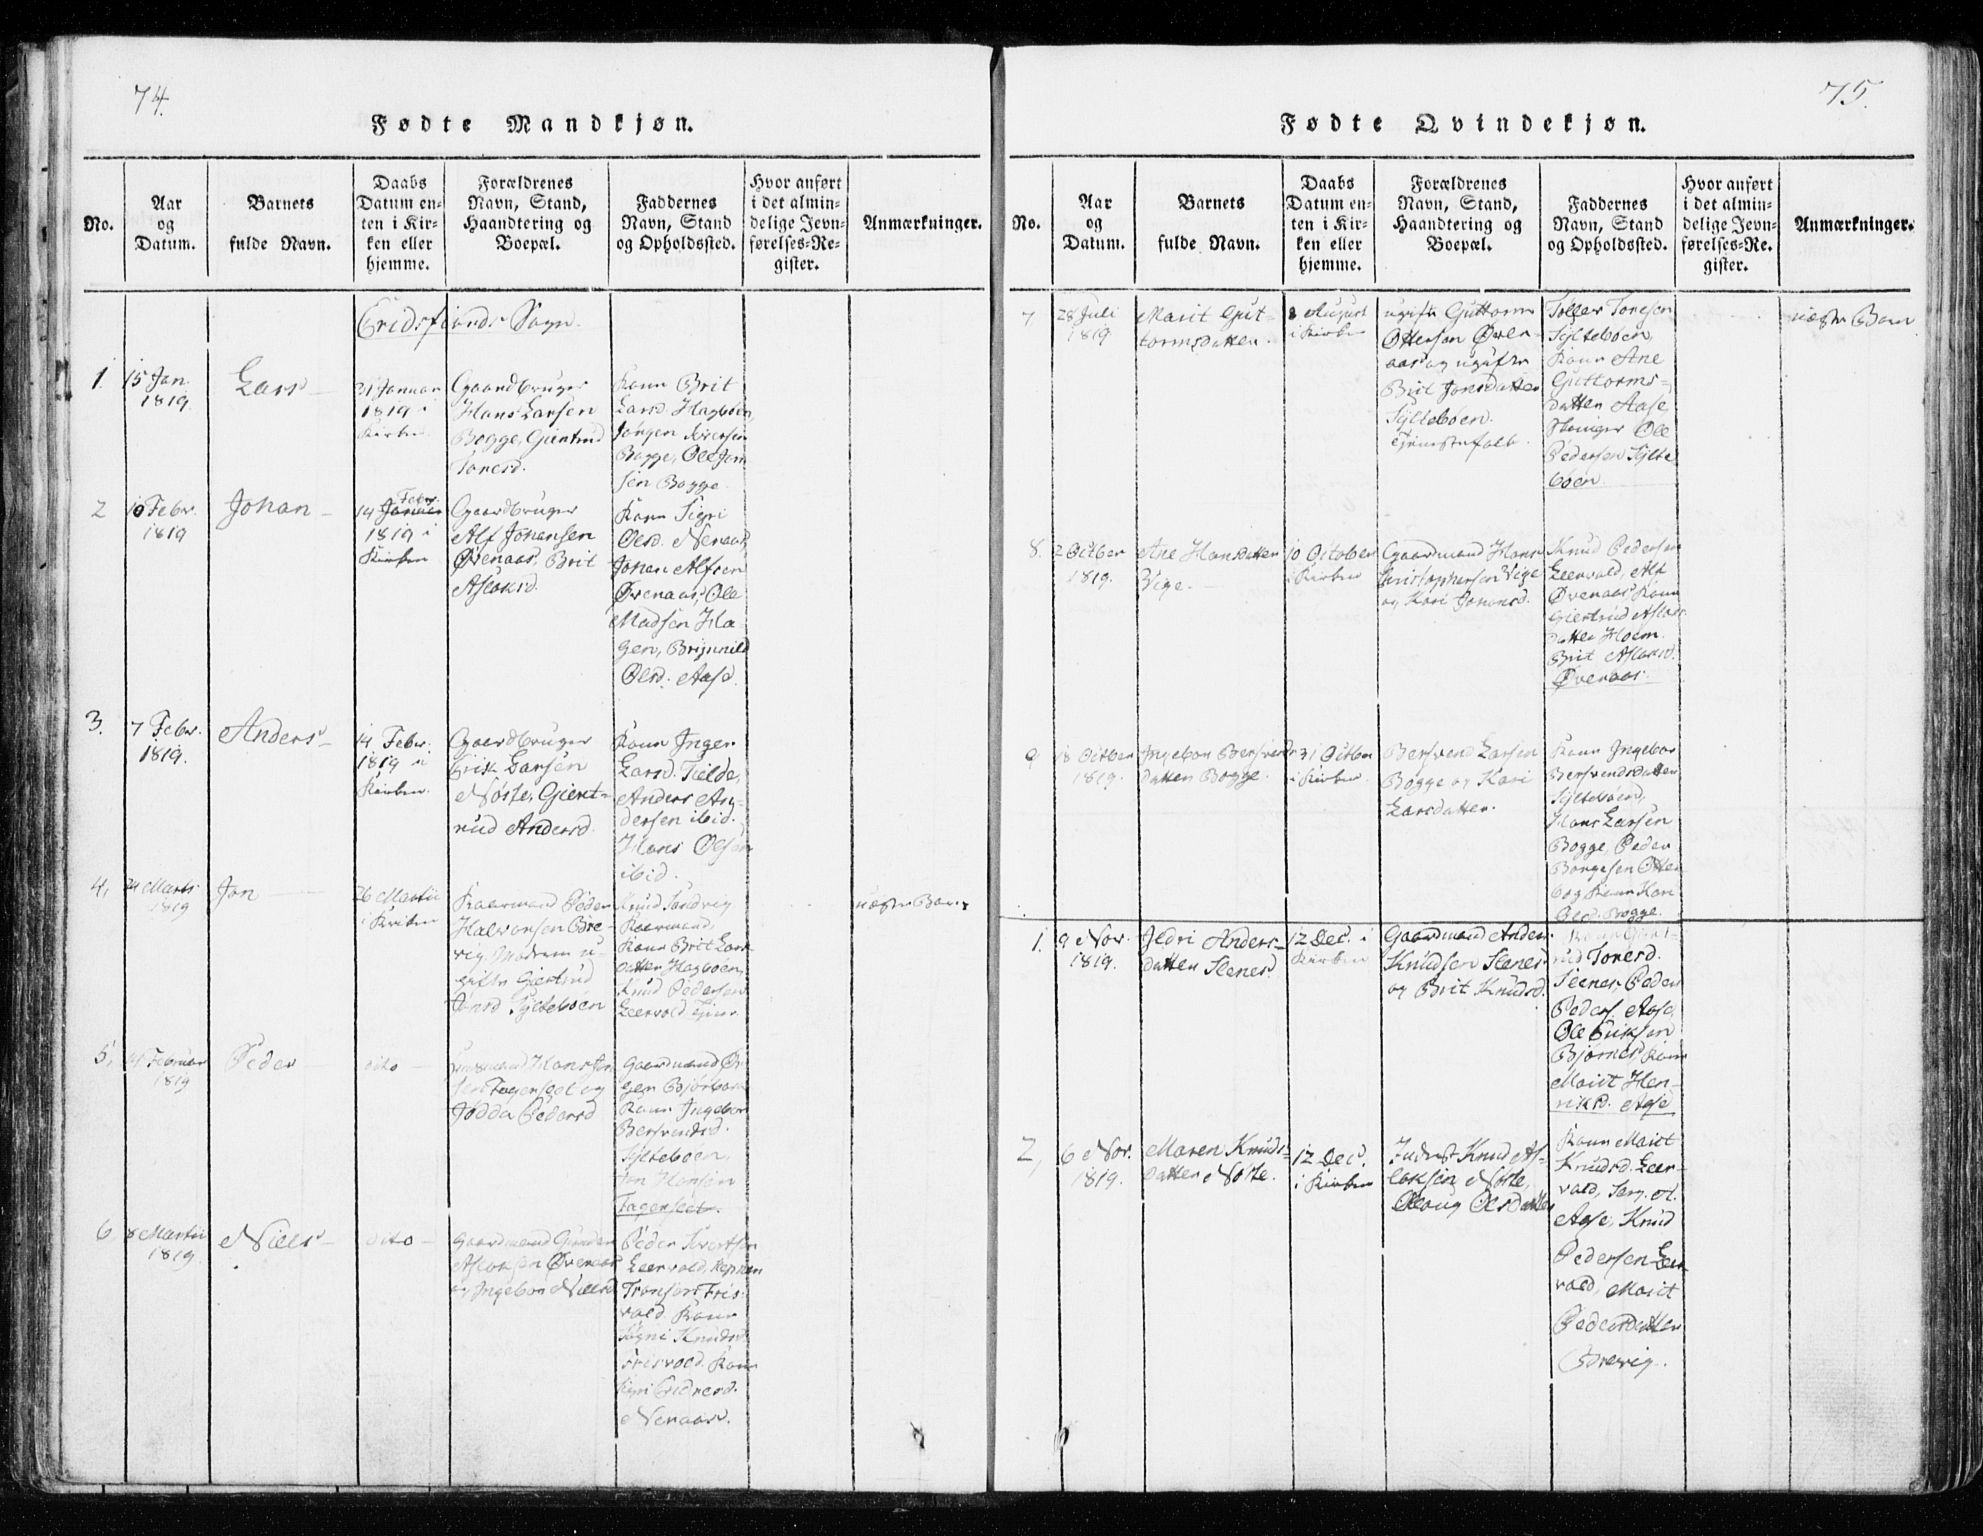 74.
Fødte Mandkjøn.
No.
Aar
og
Datum.
Barnets
fulde Navn.
Daabs
Datum en-
ten i Kir-
ken eller
hjemme.
Forældrenes
Navn, Stand,
Haandtering og
Boepæl.
Faddernes
Navn, Stand
og Opholdssted.
Hvor anført
i det almin-
delige Jevn-
førelses-Re-
gister.
Anmærkninger.
Eridsfiords Sogn.
1.
15 Jan.
1819.
Lars
31 Januar
1819 i
Kirken
Gaardbruger
Hans Larsen
Bogge, Giertrud
Toresd.
Kone Brit
Larsd. Hagbøen,
Jørgen Iversen
Bogge, Ole Jon
sen Bogge
2
10 Febr.
1819
Johan
Febr.
14 Januar
1819 i
Kirken
Gaardbruger
Alf Johansen
Øvenaas, Brit
Aslaksd.
Kone Sigri
Olsd. Nenaas
Johan Alfsen
Øvenaas, Ole
Madsen Ha
gen, Brynnild
Olsd. Aase
3.
7 Febr.
1819.
Anders
14 Febr.
1819 i
Kirken.
Gaardbruger
Erik Larsen
Nöste, Giert-
rud Andersd.
Kone Inger
Larsd. Tielde,
Anders An-
dersen ibid.
Hans Olsen
ibid.
4,
24 Marts
1819
Jon
26 Martii
i Kirken
Peder
Halvorsen Bre-
vig, Modren u-
gifte Giertrud
Jonsd Syltebøen
Knud Sandvig
Kone Brit Lars
datter Hagbøen,
Knud Pedersen
Leervold
uægte Barn
5,
14 Februar
1819
Peder
dito
Fagerslet og
Jødda Pedersd
Gaardmand
Kone Ingebor
Bersvendsd.
Syltebøen,
Jon Hansen
Fagerslet.
6
8 Martii
1819
Niels
dito
Gaardmand Gunder
Aslaksen Øvenaas
og Ingebor Nielsd
Peder Ivertsen
Leervold,
Fris
vold. Kone
Knudsd
Frisvold. Kone
Nenaas.
75.
Fødte Qvindekjøn.
No.
Aar
og
Datum.
Barnets
fulde Navn.
Daabs
Datum en-
ten i Kir-
ken eller
hjemme.
Forældrenes
Navn, Stand,
Haandtering og
Boepæl.
Faddernes
Navn, Stand
og Opholdssted.
Hvor anført
i det almin-
delige Jevn-
førelses-Re-
gister.
Anmærkninger.
7
28 Juli
1819
Marit Gut-
tormsdatter.
8 August
i Kirken
ugift Guttorm
Ottersen Øven
aas og ugifte
Brit Jonsdatter
Syltebøen.
Tjenestefolk.
Tollev Toresen
Syltebøen,
Kone Ane
Guttorms-
datter Aase
Ole
Pedersen Sylte
bøen
uægte Barn
8.
2 October
1819.
Ane Hansdatter
Vige.
10 October
i Kirken
Gaardmand Hans
Christophersen Vige
og Kari Johansd.
Knud Pedersen
Leervold, Alf
Øvenaas Kone
Giertrud Aslaks
datter Hoem.
Brit Aslaksd.
Øvenaas.
9
18 October
1819.
Ingebor Bersvends
datter Bogge.
31 October
i Kirken
Bersvend Larsen
Bogge og Kari
Larsdatter.
Kone Ingebor
Bersvendsdatter
Syltebøen,
Hans Larsen
Bogge, Peder
Olsd. Bogge.
1.
9 Nov.
1819.
Sedri Anders-
datter Stenes
12 Dec. i
Kirken
Gaardmand Anders
Knudsen Stenes
og Brit Knudsd.
Kone Giert-
rud Toresd.
Stenes, Peder
Peders. Aase,
Ole Eriksen
Bjørnes Kone
Marit Hen-
riksd. Aase
2,
6 Nov.
1819.
Maren Knuds-
datter Nöste.
12 Dec.
i Kirken
Inderst Knud As-
laksen Nöste,
Olaug Olsdatter
Kone Marit
Knudsd. Leer-
vold,
Aase, Knud
Pedersen Leer
vold, Marit
Pedersdatter
Brevig.